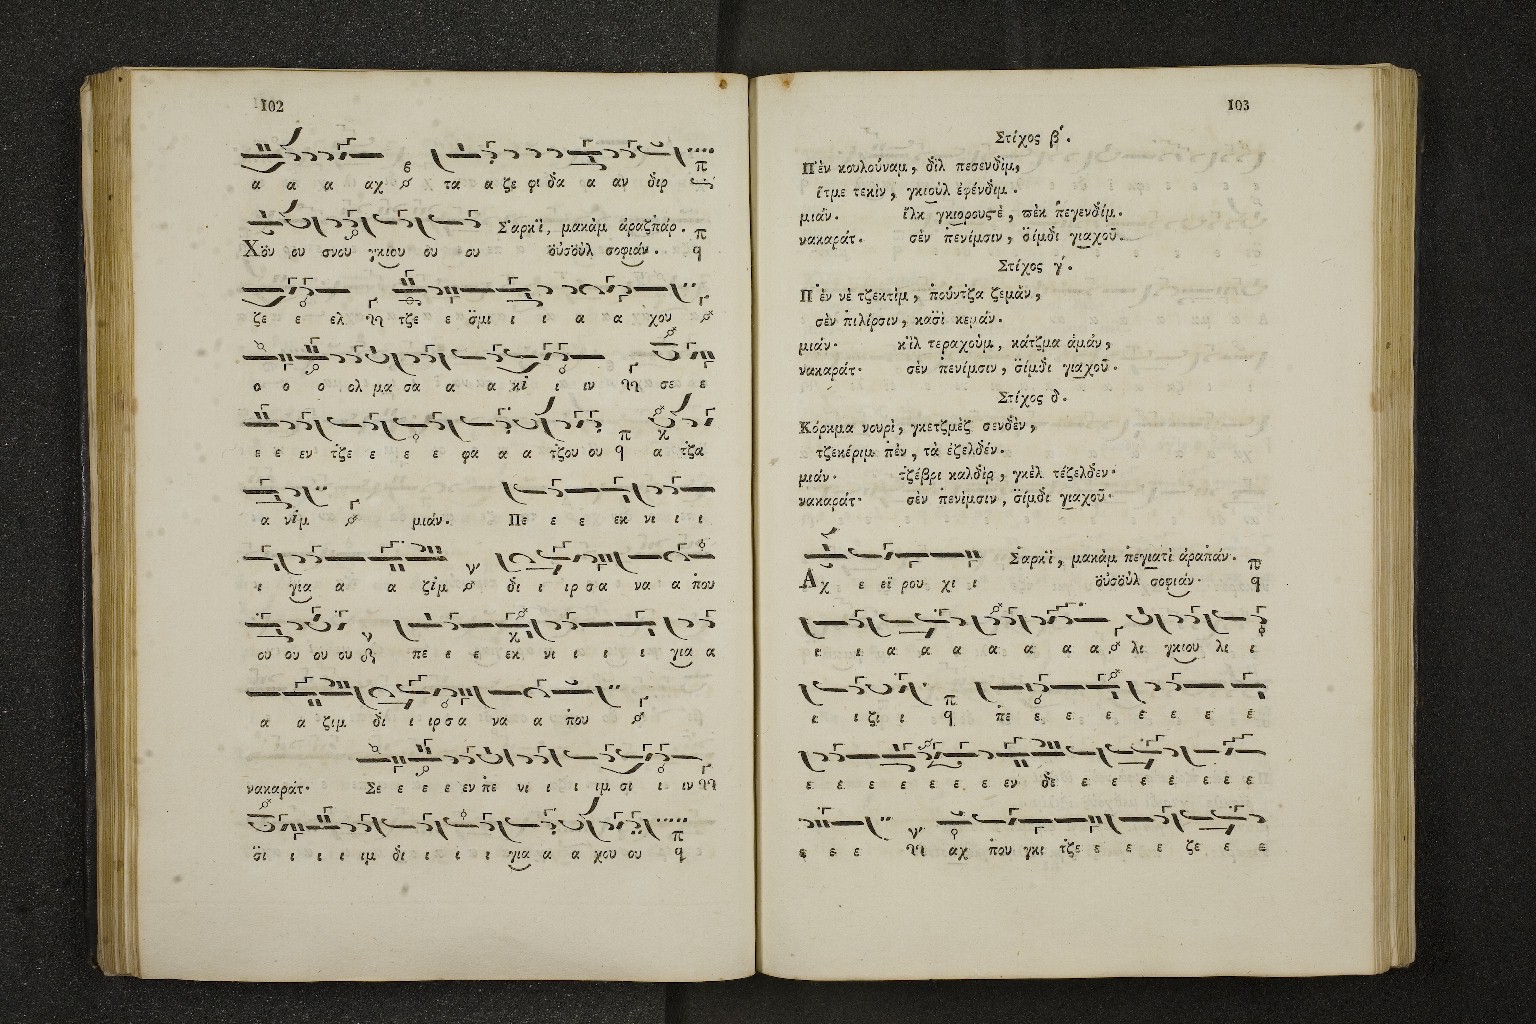 102
α α α αχ τα α ζε φι δα α αν διρ
Σαρκὶ, μακὰμ ἀραζπάρ.
Χοὺ ου σνου γκιου ου ου οὐσοὺλ σοφιάν.
ζε ε ελ τζε ε σμι ι ι α α χου
ο ο ο ολ μα σα α α κι ι ιν σε ε
ε ε εν τζε ε ε ε φα α α τζου ου α τζα
α νιμ μιάν. Πε ε ε εκ νι ι ι
ι για α α ζιμ δι ι ιρ σα να α που
ου ου ου ου πε ε ε εκ νι ι ι ι για α
α α ζιμ δι ι ιρ σα να α που
νακαράτ. Σε ε ε ε εν πε νι ι ι ιμ σι ι ιν
σι ι ι ι ιμ δι ι ι ι για α α χου ου
103
Στίχος β΄.
Πὲν κουλούναμ, δὶλ πεσενδὶμ,
ἴτμε τεκὶν, γκιοὺλ ἐφένδιμ.
μιάν. ἴλκ γκιορουςὲ, πὲκ πεγενδίμ.
νακαράτ. σὲν πενίμσιν, σίμδι γιαχοῦ.
Στίχος γ΄.
Πὲν νὲ τζεκτὶμ, πούντζα ζεμὰν,
σὲν πιλίρσιν, κασὶ κεμάν.
μιάν. κὶλ τεραχοὺμ, κάτζμα ἀμάν,
νακαράτ. σὲν πενίμσιν, σίμδι γιαχοῦ.
Στίχος δ.
Κόρκμα νουρὶ, γκετζμὲζ σενδὲν,
τζεκέριμ πὲν, τὰ ἐζελδέν.
μιάν. τζέβρι καλδὶρ, γκὲλ τέζελδεν.
νακαράτ. σὲν πενὶμσιν, σίμδι γιαχοῦ.
Σαρκὶ, μακὰμ πεγιατὶ ἀραπάν.
Αχ ε εϊ ρου χι ι οὐσοὺλ σοφιάν.
ι ι α α α α α α α λι γκιου λι ι
ι ι ζι ι πε ε ε ε ε ε ε ε
ε ε ε ε ε ε ε εν δε ε ε ε ε ε ε ε
ε ε ε αχ που γκι τζε ε ε ε ε ζε ε ε